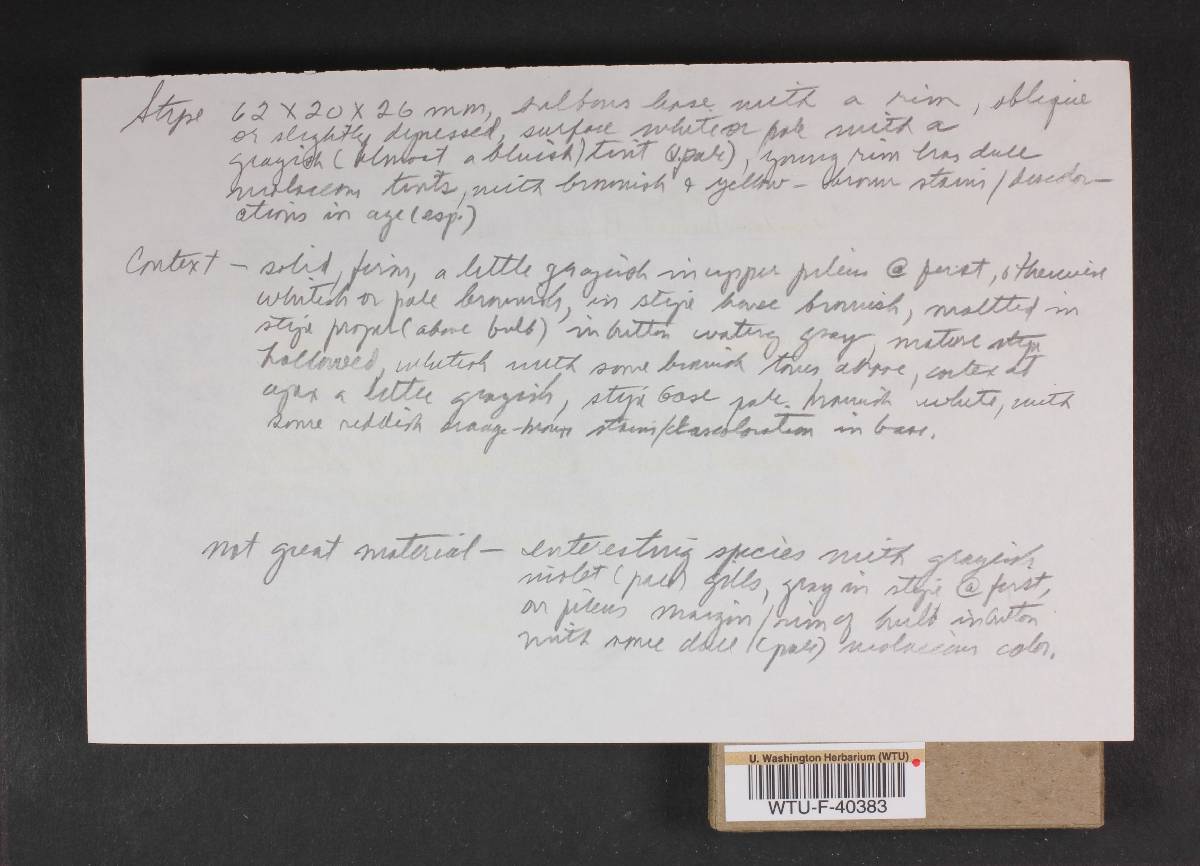 Stipe 62 X 20 X 26 mm, bulbous base with a rim, oblique
or slightly depressed, surface white or pale with a
grayish (almost a bluish) tint (v. pale), young rim has dull
violaceous tints, with brownish & yellow-brown stains/discolor-
ations in age (esp.)
Context - solid, firm, a little grayish in upper pileus @ first, otherwise
whitish or pale brownish, in stipe base brownish, mottled in
stipe proper (above bulb) in button watery gray, mature stipe
hollowed, whitish with some brownish tones above, cortex at
apex a little grayish, stipe base pale brownish white, with
some reddish orange-brown stains/discoloration in base.
not great material - interesting species with grayish
violet (pale) gills, gray in stipe @ first,
on pileus margin/rim of bulb in button
with some dull (pale) violaceous color.
U. Washington Herbarium (WTU)
WTU-F-40383